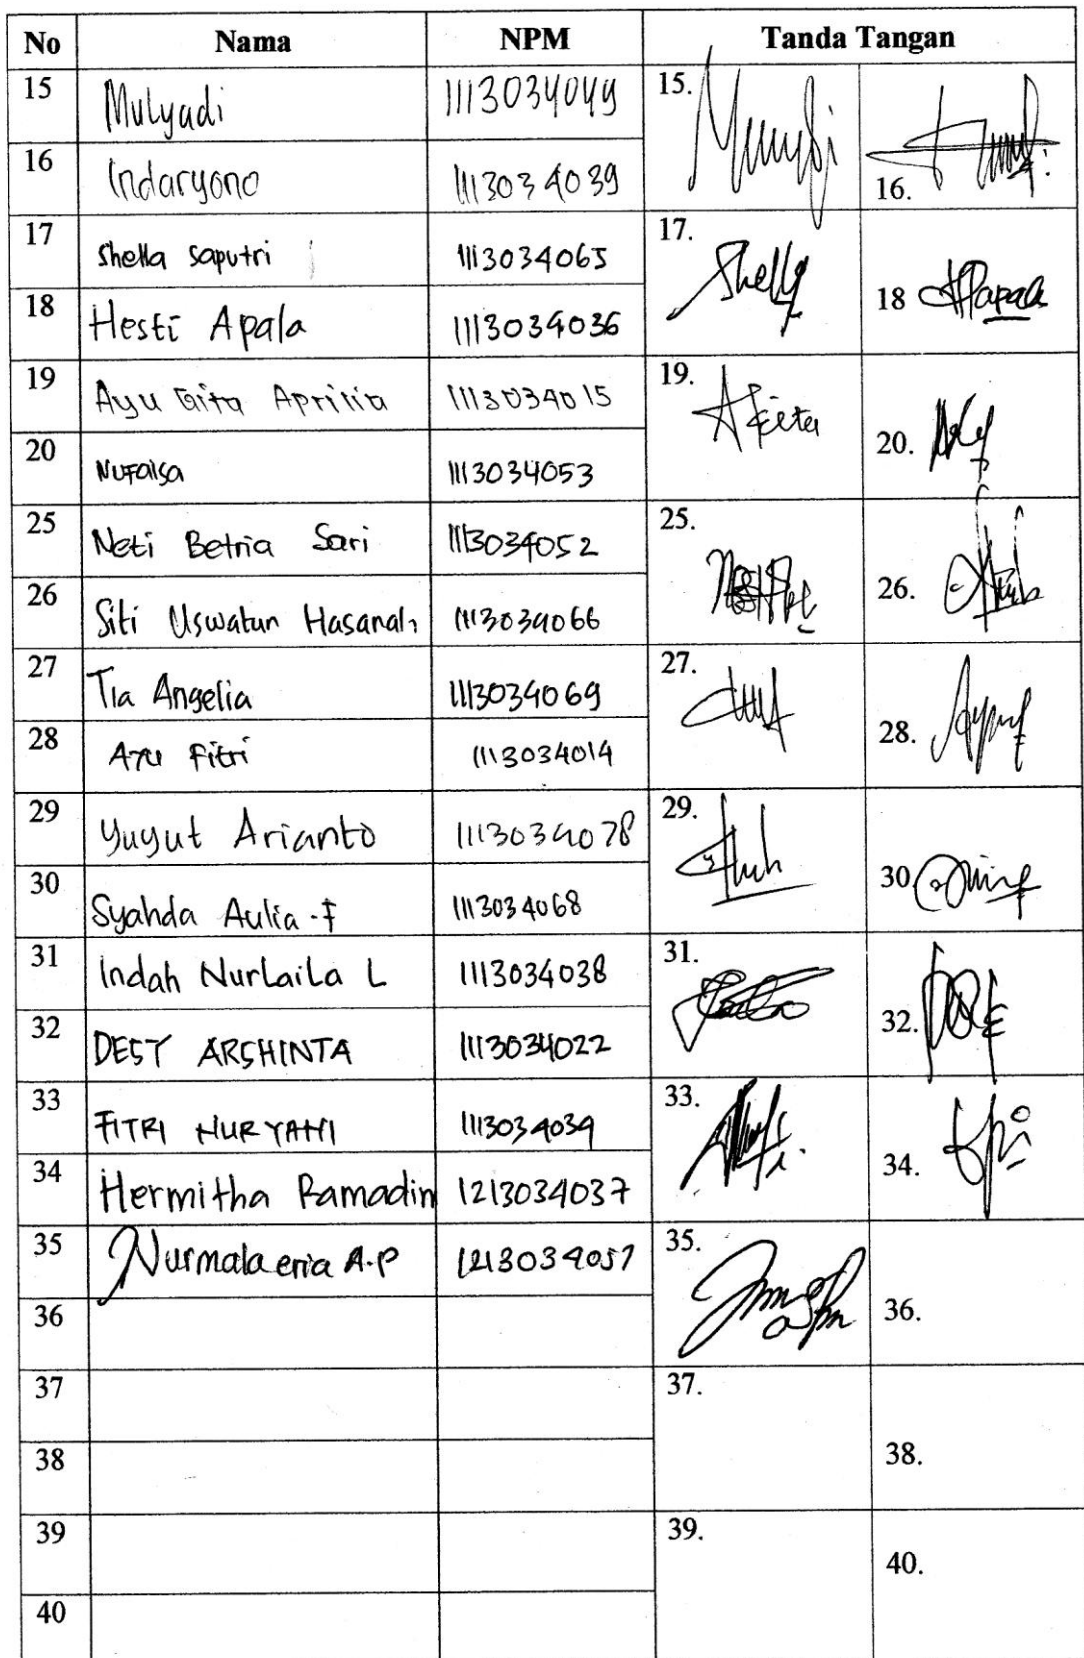 No Nama NPM Tanda Tangan
15 Mulyadi 1113034049 15.
16 Indaryono 1113034039 16.
17 Shella Saputri 1113034065 17. Shelly
18 Hesti Apala 1113034036 18
19 Ayu Gita Aprilia 1113034015 19.
20 Nufaisa 1113034053 20.
25 Neti Betria Sari 1113034052 25.
26 Siti Uswatun Hasanah 1113034066 26.
27 Tia Angelia 1113034069 27.
28 Ayu Fitri 1113034014 28.
29 Yuyut Arianto 1113034078 29.
30 Syahda Aulia .F 1113034068 30
31 Indah NurLaiLa L 1113034038 31.
32 DESY ARSHINTA 1113034022 32.
33 FITRI NURYANI 1113034034 33.
34 Hermitha Ramadin 1213034037 34.
35 Nurmalaeria A.P 1213034057 35.
36 36.
37 37.
38 38.
39 39.
40 40.